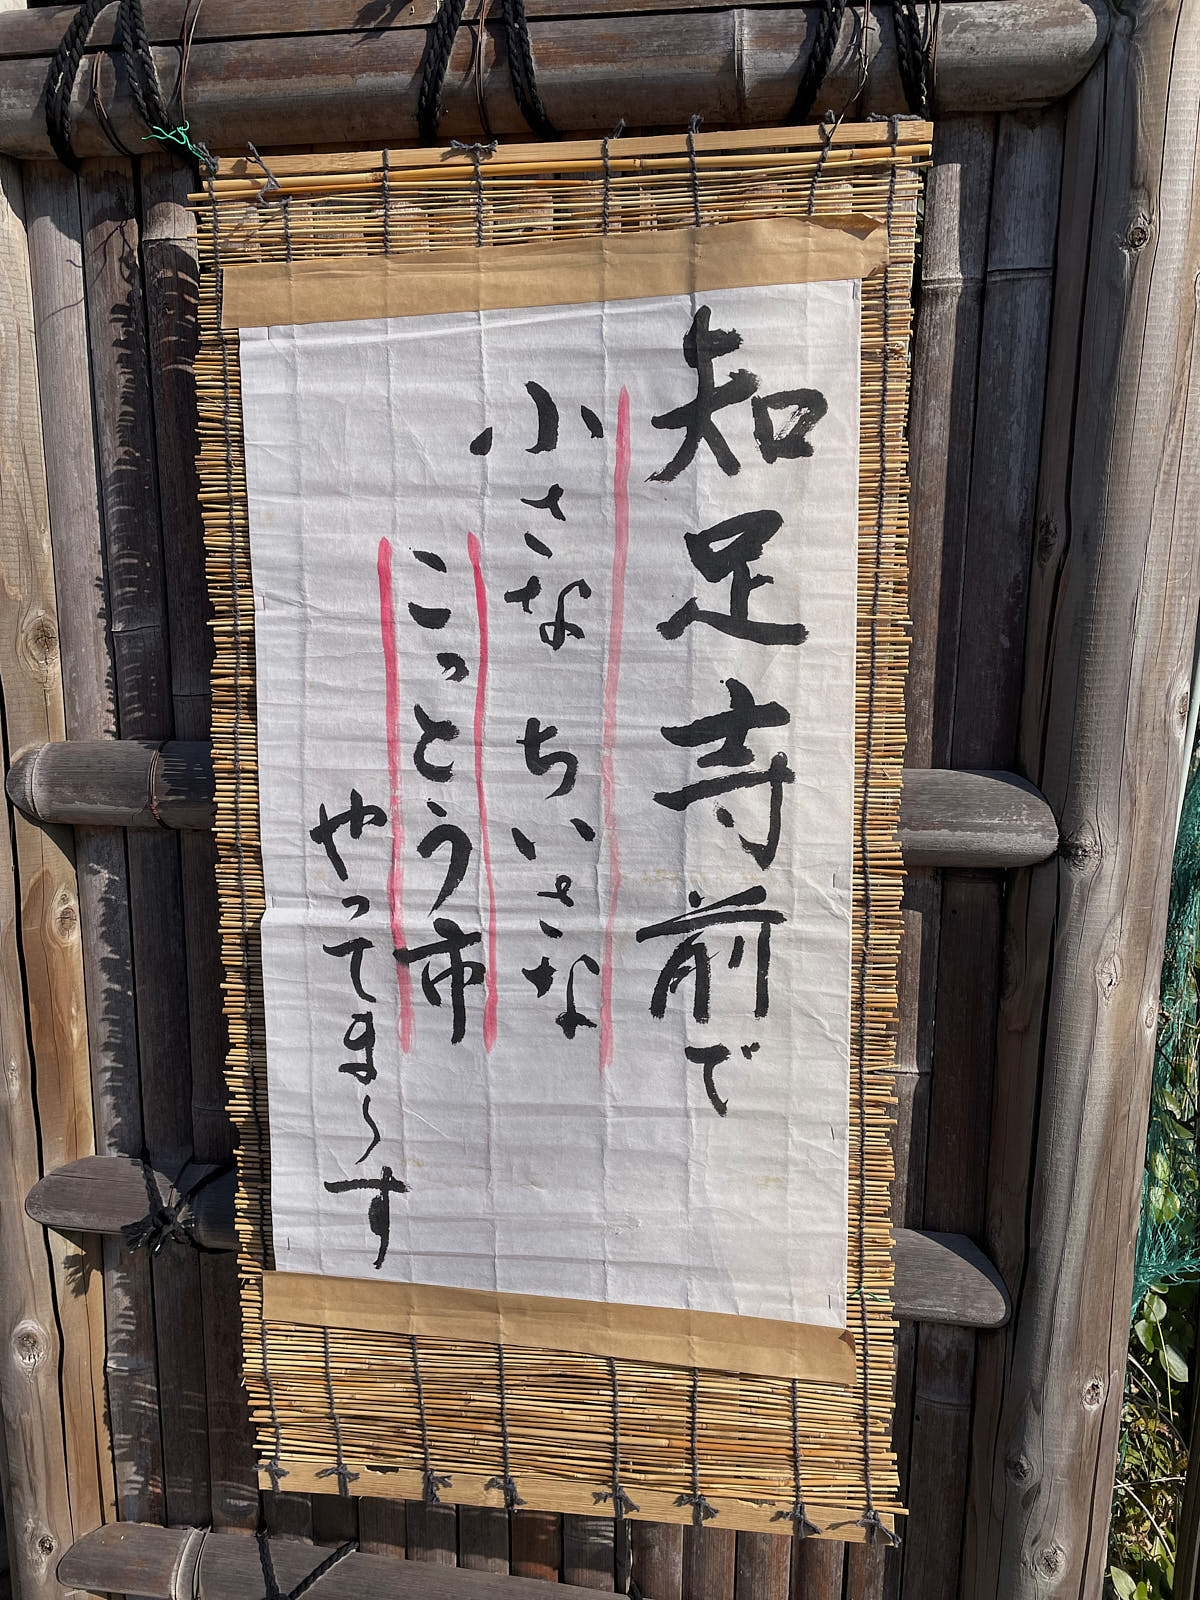 知足寺前で
小さなちいさな
こっとう市
やってま〜す